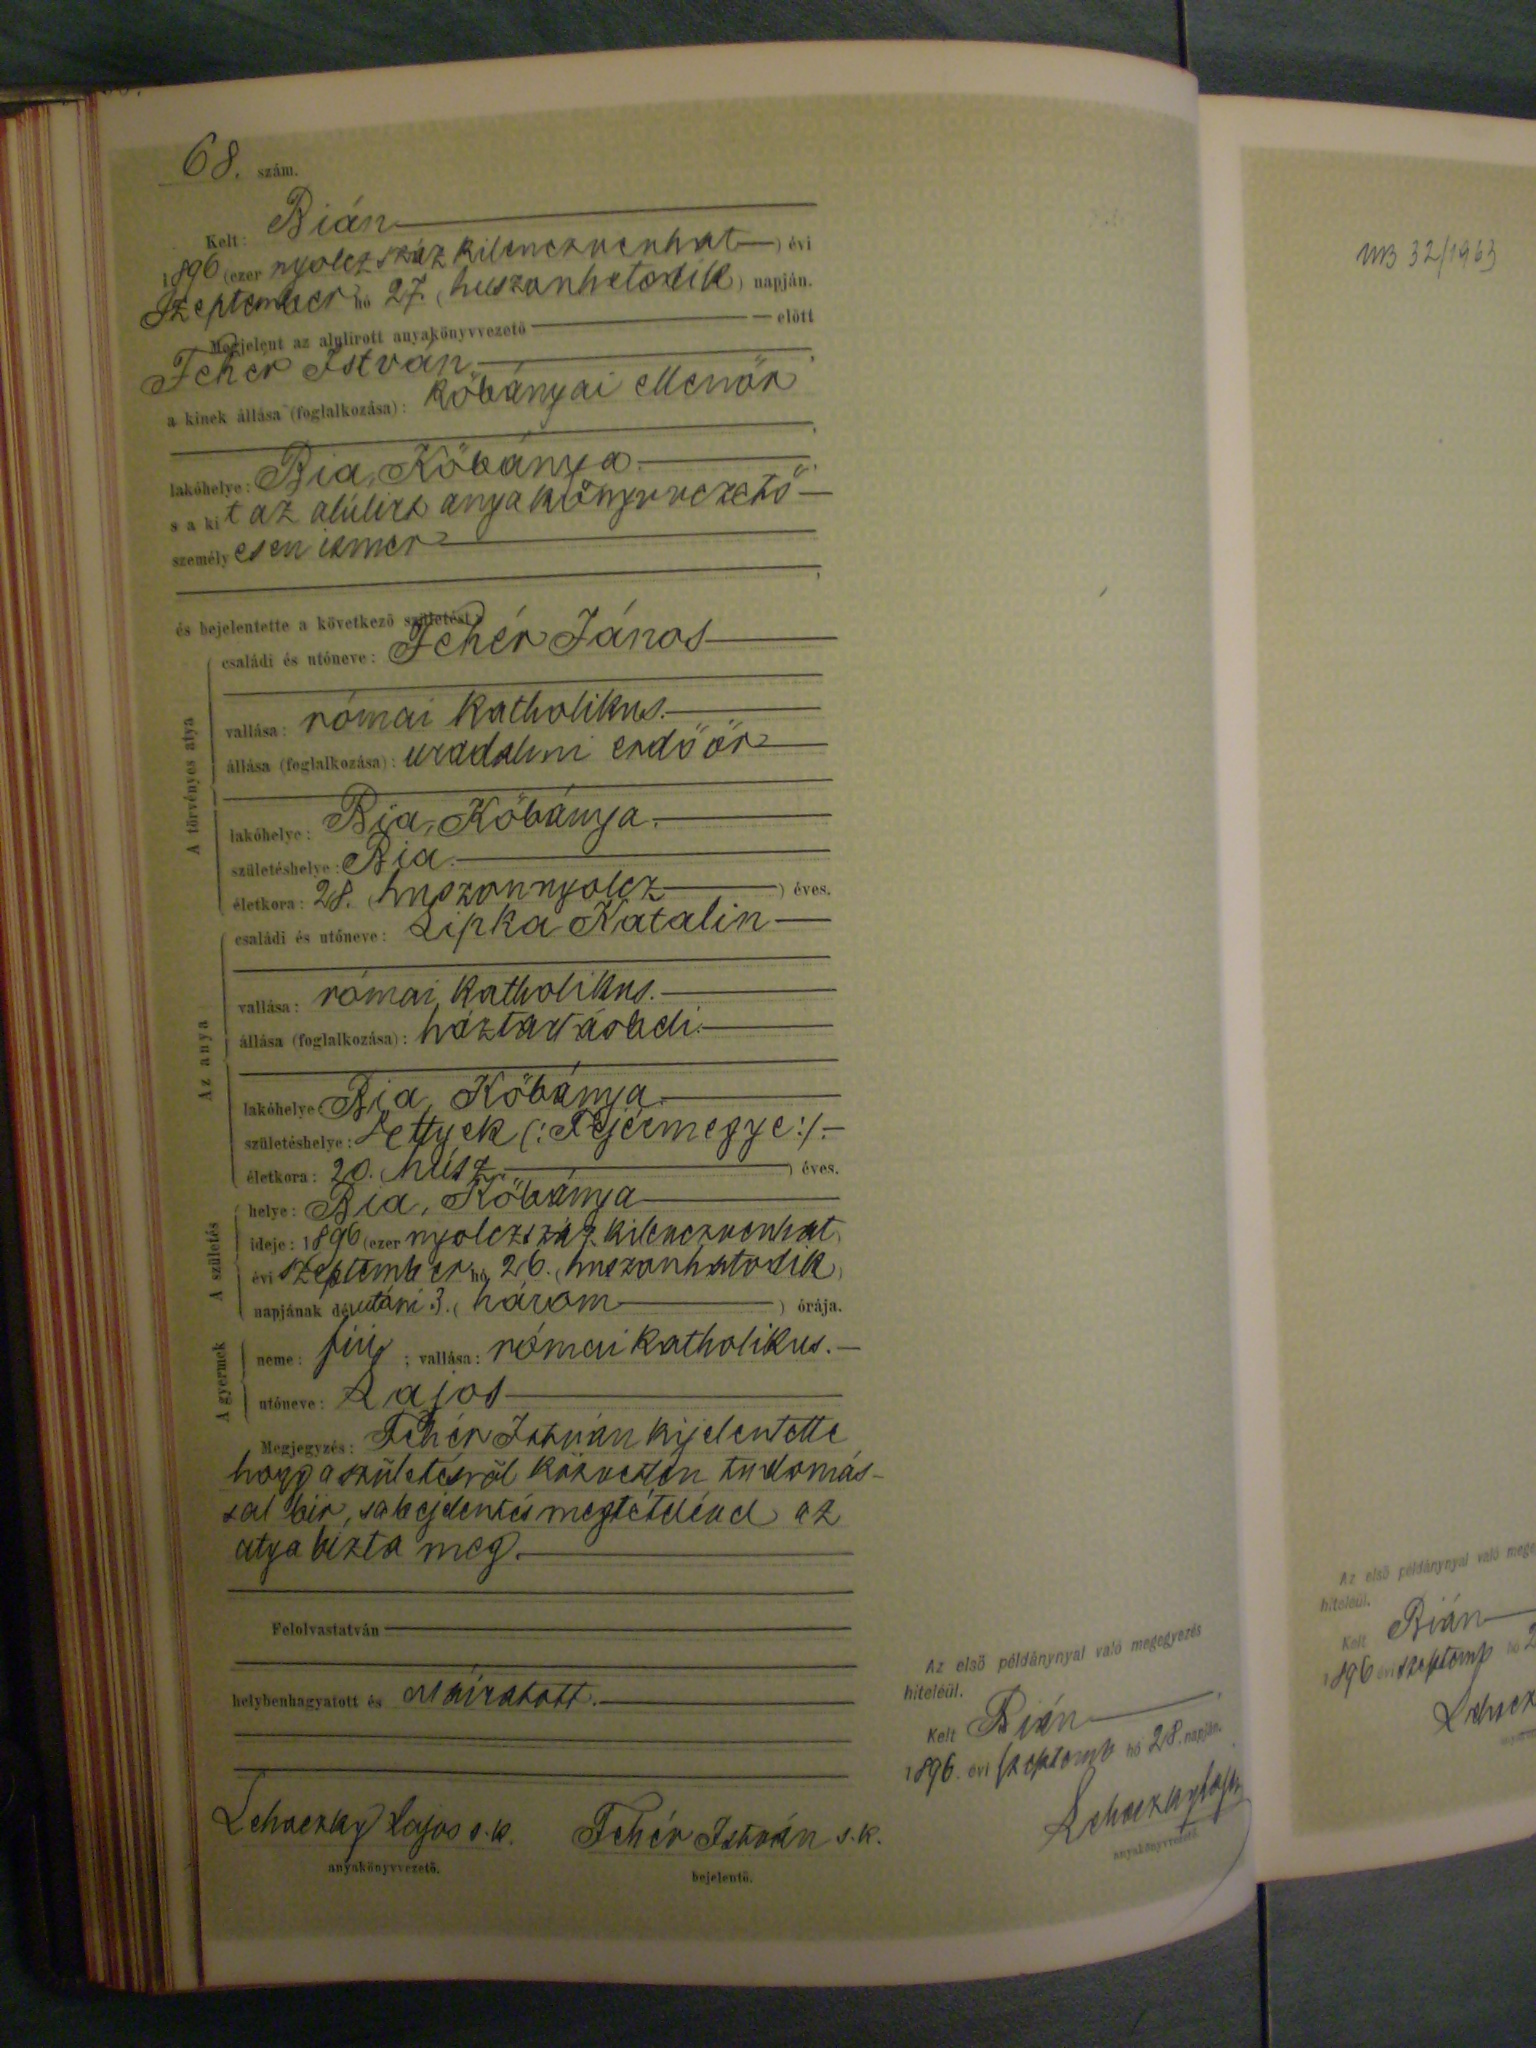 68. szám.
Kelt: Bián
1896 (ezer nyolczszáz kilenczvenhat) évi
Szeptember hó 27. (huszonhetedik) napján.
Megjelent az alulirott anyakönyvvezető előtt
Fehér István
a kinek állása (foglalkozása): kőbányai ellenőr
lakóhelye: Bia, Kőbánya.
s a kit az alúlirt anyakönyvvezető
személyesen ismer
és bejelentette a következő születést:
A törvényes atya
családi és utóneve: Fehér János
vallása: római katholikus.
állása (foglalkozása): uradalmi erdőőr
lakóhelye: Bia, Kőbánya.
születéshelye: Bia.
életkora: 28. (huszonnyolcz) éves.
Az anya
családi és utóneve: Lipka Katalin
vallása: római katholikus.
állása (foglalkozása): háztartásbeli.
lakóhelye: Bia, Kőbánya.
születéshelye: (:Fejérmegye:).
életkora: 20. (húsz) éves.
A születés
helye: Bia, Kőbánya
ideje: 1896 (ezer nyolczszáz kilenczvenhat)
évi szeptember hó 26. (huszonhatodik)
napjának délutáni 3. (három) órája.
A gyermek
neme: fiú; vallása: római katholikus.
utóneve: Lajos
Megjegyzés: Fehér István kijelentette
hogy a születésről közvetlen tudomás-
sal bir, s a bejelentés megtételével az
atya bízta meg.
Felolvastatván
helybenhagyatott és aláiratott.
Lajos s.k. Fehér István s.k.
anyakönyvvezető. bejelentő.
Az első példánynyal való megegyezés
hiteléül.
Kelt Bián
1896. évi szeptemb hó 28. napján.
anyakönyvvezető
MB 32/1963
Az első példánynyal való
hiteléül.
Kelt Bián
1896 évi szeptemb hó 2